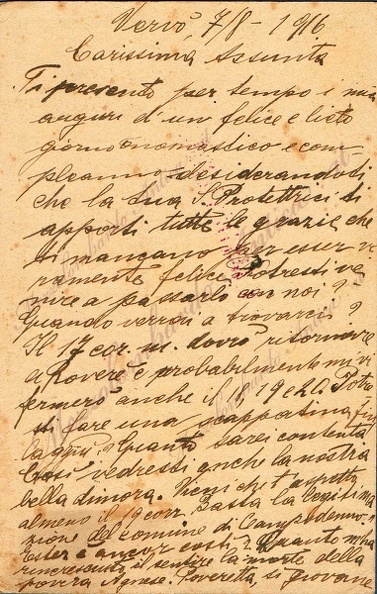 Vervò, 7/8 - 1916
Carissima Assunta
Ti presento per tempo i miei
auguri d'un felice e lieto
giorno onomastico e com-
pleanno desiderandoti
che la tua S. Protettrici ti
apporti tutte le grazie che
ti mancano per esser ve-
ramente felice. Potresti ve-
nire a passarlo con noi?
Quando verrai a trovarci?
Il 17 cor. m. dovrò ritornare
a Rovere e probabilmente mi vi
fermerò anche il 19 e 20. Potre-
sti fare una scappatina fin
laggiù? Quanto sarei contenta
Così vedresti anche la nostra
bella dimora. Vieni che t'aspetto
almeno il 19 corr. basta la legitima-
zione del comune di Campodenno
Ester è ancor costì? Quanto m'ha
rincresciuto il sentire la morte della
povera Agnese. Poveretta, sì giovane